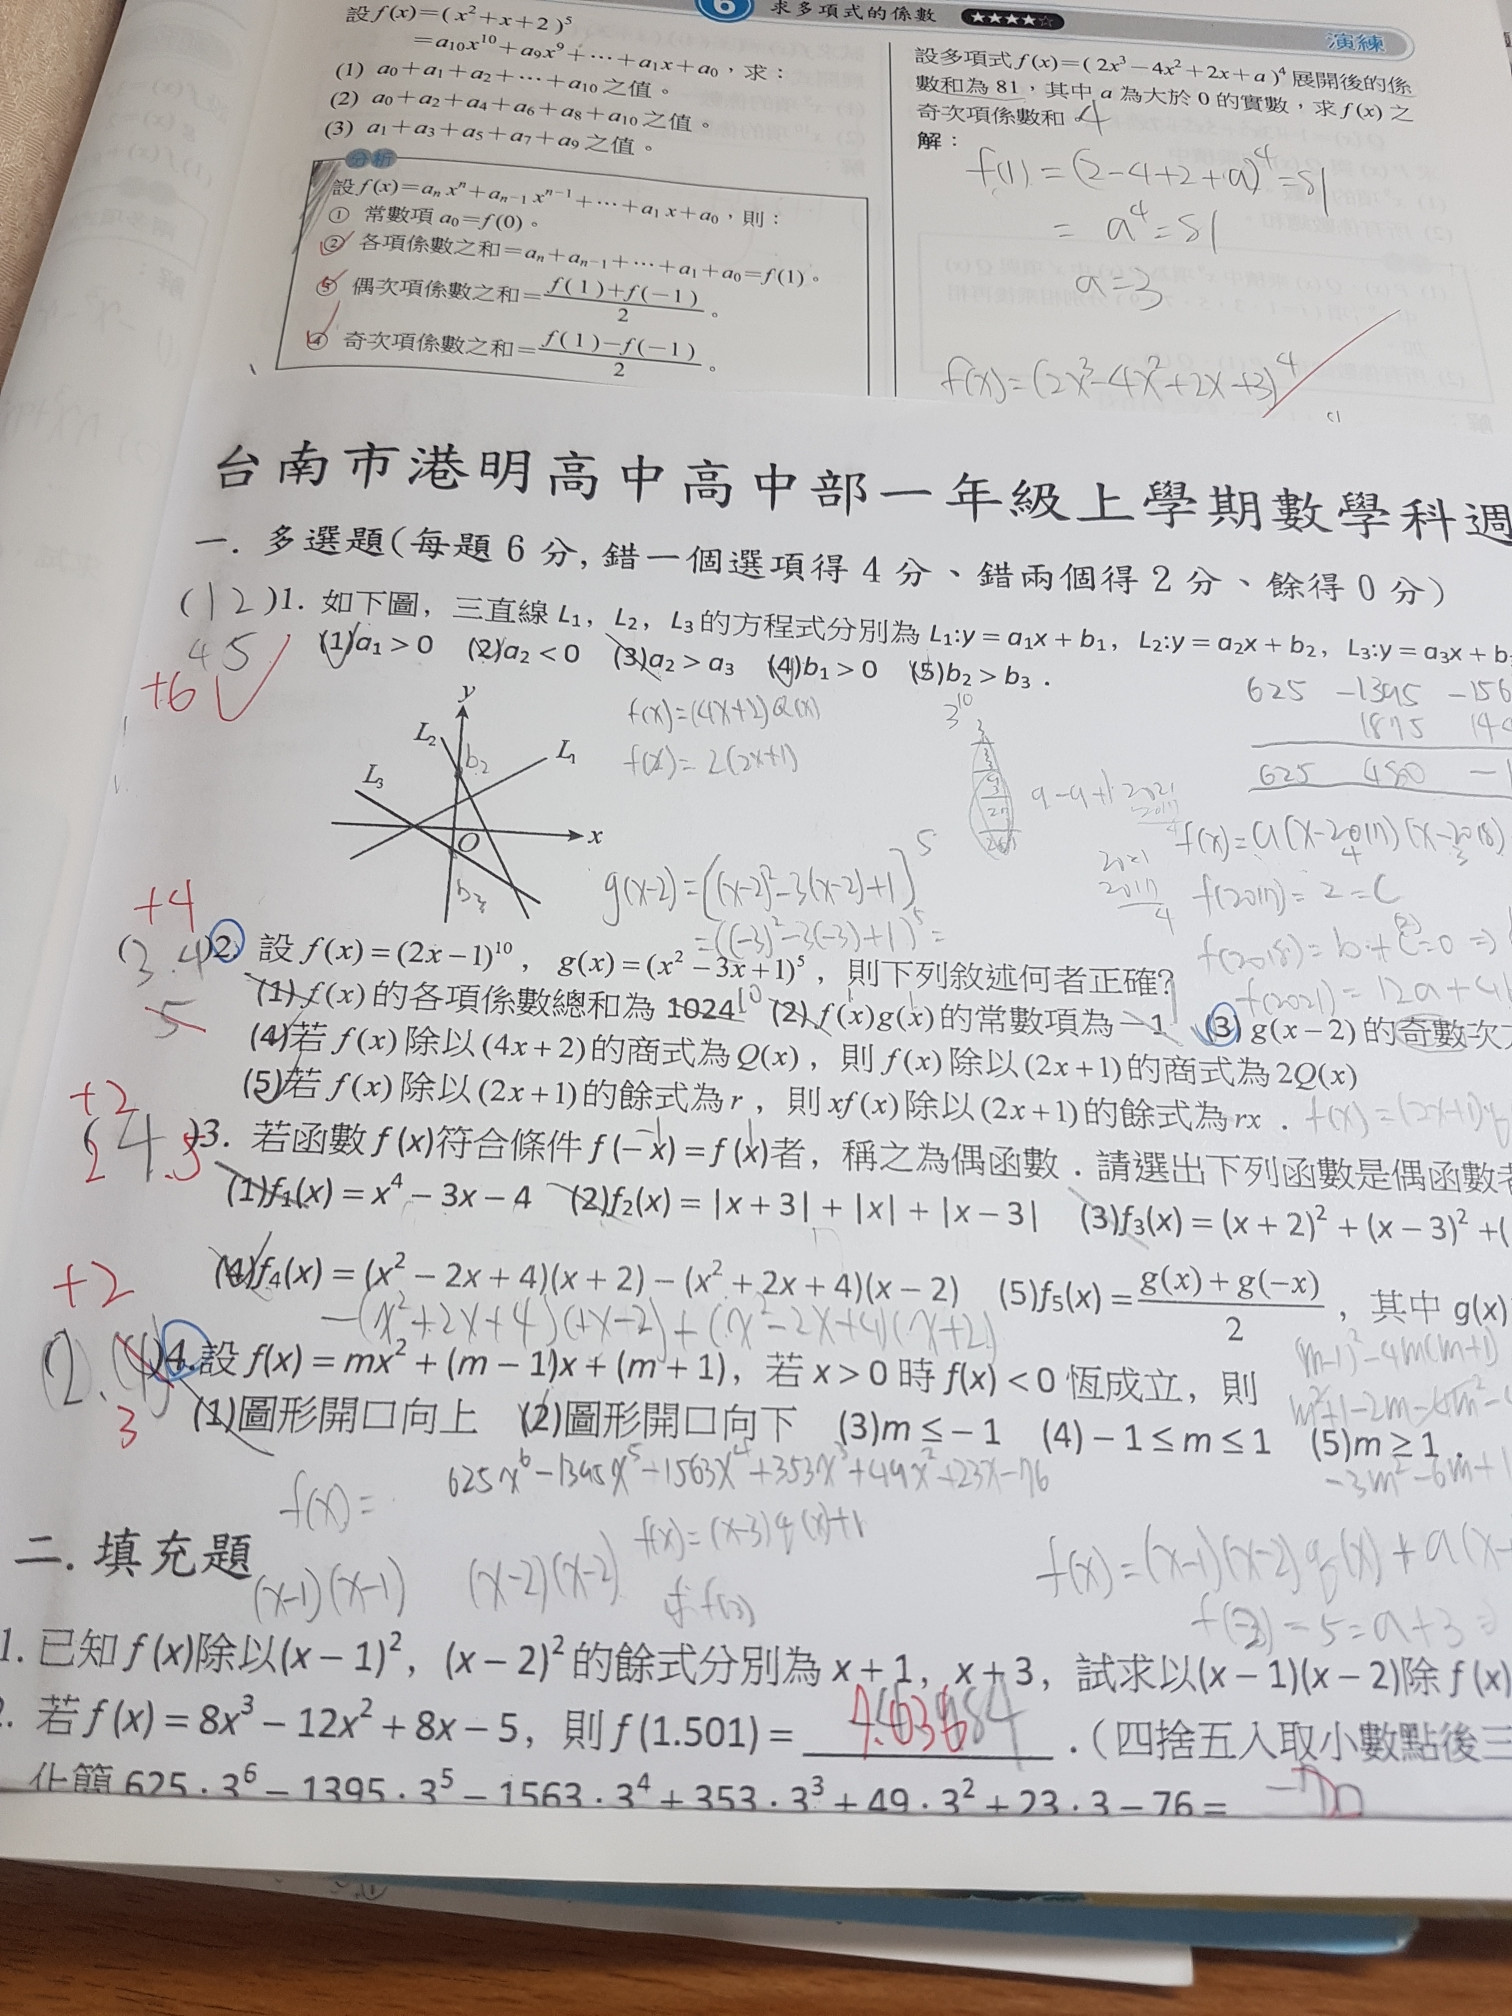 設f(x)=(x²+x+2)⁵
6 求多項式的係數 ★★★★☆
=a₁₀x¹⁰+a₉x⁹+⋯+a₁x+a₀，求：
演練
(1) a₀+a₁+a₂+⋯+a₁₀之值。
(2) a₀+a₂+a₄+a₆+a₈+a₁₀之值。
(3) a₁+a₃+a₅+a₇+a₉之值。
分析
設f(x)=aₙxⁿ+aₙ₋₁xⁿ⁻¹+⋯+a₁x+a₀，則：
① 常數項a₀=f(0)。
② 各項係數之和=aₙ+aₙ₋₁+⋯+a₁+a₀=f(1)。
③ 偶次項係數之和=f(1)+f(-1)/2。
④ 奇次項係數之和=f(1)-f(-1)/2。
設多項式f(x)=(2x³-4x²+2x+a)⁴展開後的係
數和為81，其中a為大於0的實數，求f(x)之
奇次項係數和 4
解：
f(1)=(2-4+2+a)⁴=81
=a⁴=81
a=3
f(x)=(2x³-4x²+2x+3)⁴
台南市港明高中高中部一年級上學期數學科週
一. 多選題(每題6分, 錯一個選項得4分、錯兩個得2分、餘得0分)
(12)1. 如下圖，三直線L₁，L₂，L₃的方程式分別為L₁:y=a₁x+b₁，L₂:y=a₂x+b₂，L₃:y=a₃x+b
45
(1)a₁>0 (2)a₂<0 (3)a₂>a₃ (4)b₁>0 (5)b₂>b₃．
+6
625 -1395 -156
1875
625 480
y
L₂
b₂
L₁
L₃
x
O
b₃
f(x)=(4x+2)Q(x)
f(x)=2(2x+1)
3¹⁰
f(x)=a(x-2017)(x-2018)
2021
2017
4
f(2017)=2=C
g(x-2)=[(x-2)²-3(x-2)+1]⁵
=((-3)²-3(-3)+1)⁵=
+4
(3.4)2. 設f(x)=(2x-1)¹⁰，g(x)=(x²-3x+1)⁵，則下列敘述何者正確?
5
(1)f(x)的各項係數總和為1024 (2)f(x)g(x)的常數項為-1 (3)g(x-2)的奇數次
(4)若f(x)除以(4x+2)的商式為Q(x)，則f(x)除以(2x+1)的商式為2Q(x)
(5)若f(x)除以(2x+1)的餘式為r，則xf(x)除以(2x+1)的餘式為rx．
+2
(24.5)3. 若函數f(x)符合條件f(-x)=f(x)者，稱之為偶函數．請選出下列函數是偶函數
(1)f₁(x)=x⁴-3x-4 (2)f₂(x)=|x+3|+|x|+|x-3| (3)f₃(x)=(x+2)²+(x-3)²+(
(4)f₄(x)=(x²-2x+4)(x+2)-(x²+2x+4)(x-2) (5)f₅(x)=g(x)+g(-x)/2，其中g(x)
-(x²+2x+4)(+x-2)+(x²-2x+4)(x+2)
+2
(2.(4))4.設f(x)=mx²+(m-1)x+(m+1)，若x>0時f(x)<0恆成立，則
3
(m-1)²-4m(m+1)
(1)圖形開口向上 (2)圖形開口向下 (3)m≤-1 (4)-1≤m≤1 (5)m≥1．
f(x)=
625x⁶-1395x⁵-1563x⁴+353x³+49x²+23x-76
f(x)=(x-3)q(x)+1
f(x)=(x-1)(x-2)q(x)+a(x-
二. 填充題
(x-1)(x-1) (x-2)(x-2)
1. 已知f(x)除以(x-1)²，(x-2)²的餘式分別為x+1，x+3，試求以(x-1)(x-2)除f(x)
若f(x)=8x³-12x²+8x-5，則f(1.501)=______．(四捨五入取小數點後三
化簡625·3⁶-1395·3⁵-1563·3⁴+353·3³+49·3²+23·3-76=